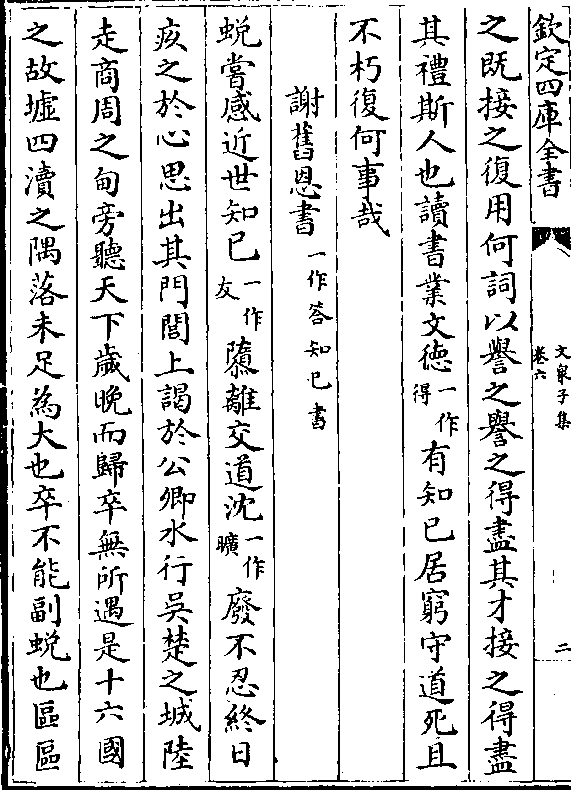 欽定四庫全書
文泉子集
卷六
二
之既接之復用何詞以譽之譽之得盡其才接之得盡
其禮斯人也讀書業文德一作得有知已居窮守道死且
不朽復何事哉
謝舊恩書一作答知已書
蛻嘗感近世知已一作友隳離交道沈一作曠廢不忍終日
疚之於心思出其門閭上謁於公卿水行吳楚之城陸
走商周之甸旁聽天下歲晚而歸卒無所遇是十六國
之故墟四瀆之隅落未足為大也卒不能副蛻也區區